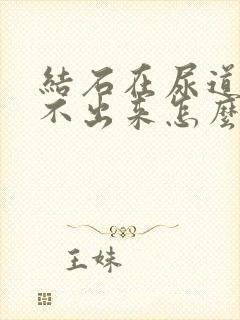 結石在尿道
不出来怎麼
王妹